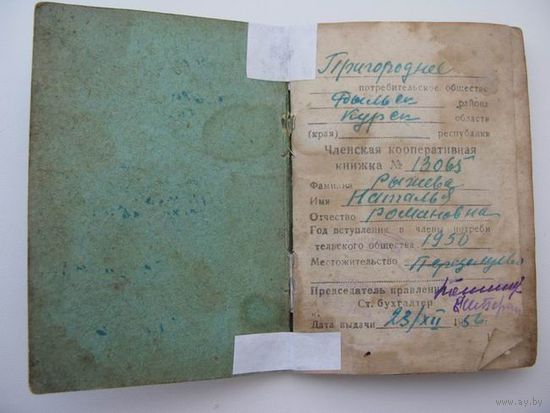 Пригороднее
потребительское общество
Рыльск района
Курск области
(края) республики
Членская кооперативная
книжка № 13065
Фамилия Рыжева
Имя Наталья
Отчество Романовна
Год вступления в члены потреби
тельского общества 1950
Местожительство
Председатель правления
Ст. бухгалтер
Дата выдачи 23/XII 1956
www.ay.by